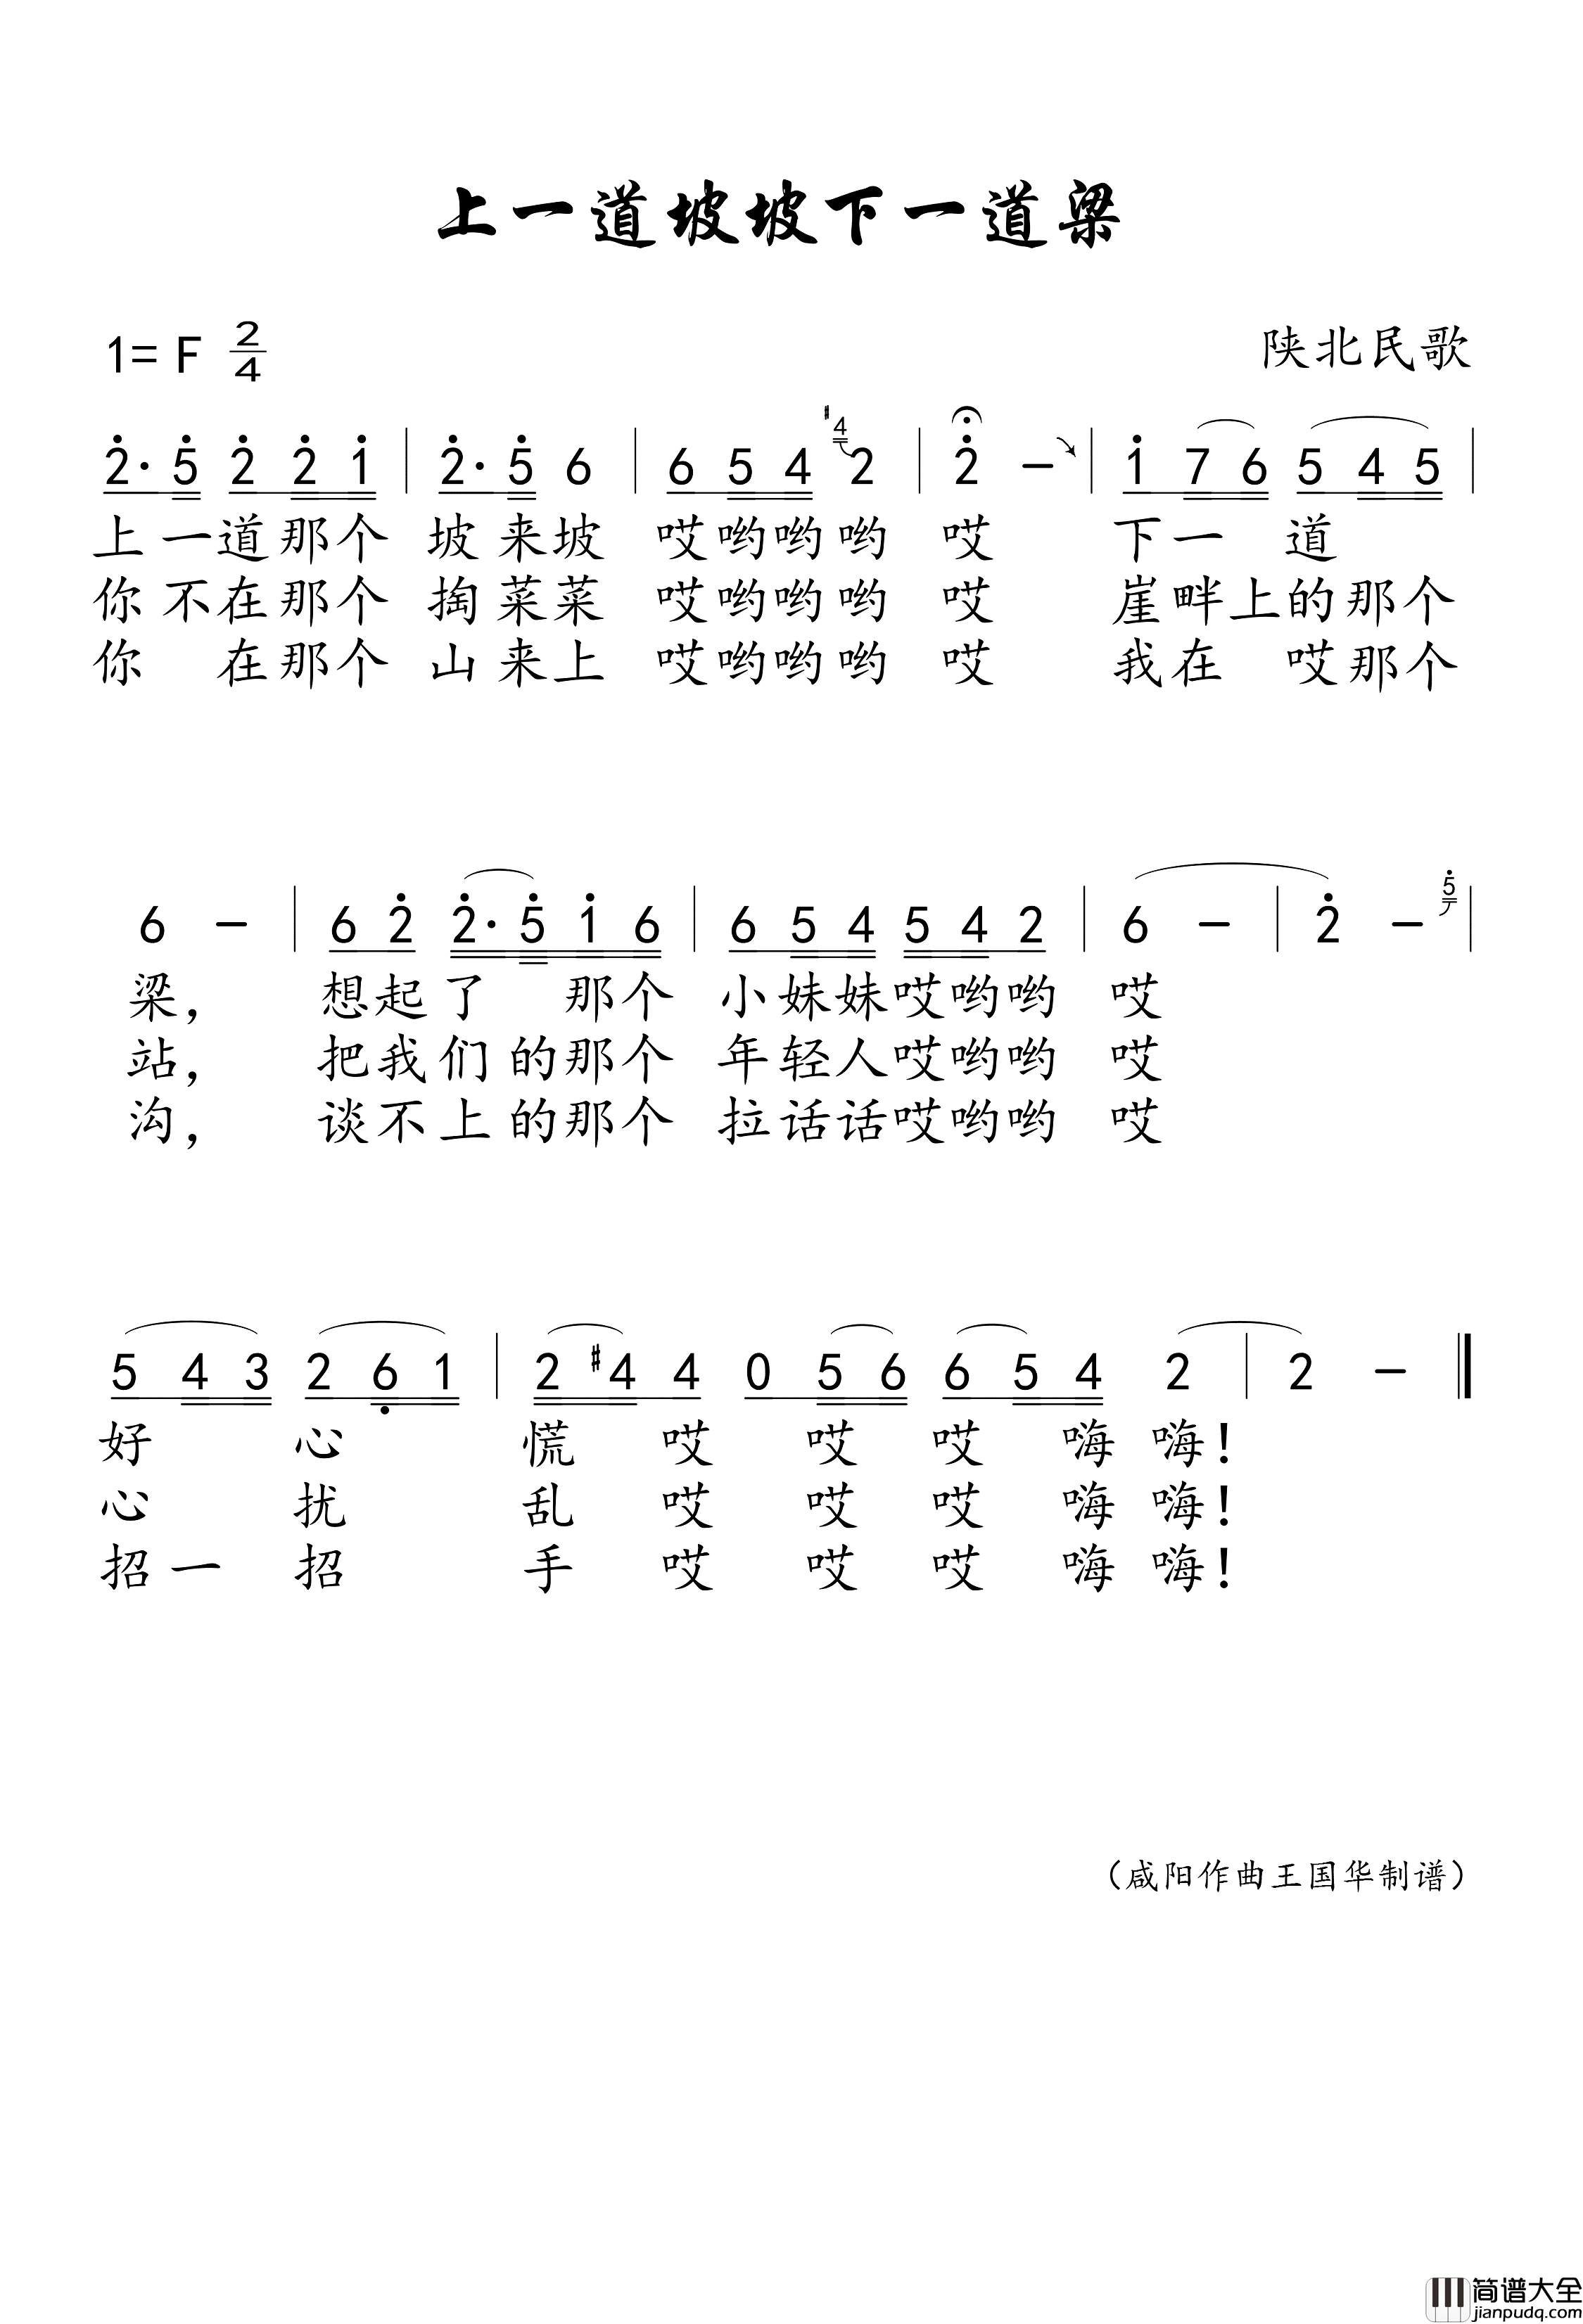 上一道坡坡下一道梁
1= F 2/4
陕北民歌
#4
2· 5 2 2 1 | 2· 5 6 | 6 5 4 2 | 2 – | 1 7 6 5 4 5 |
上一道那个 坡来坡 哎哟哟哟 哎 下一 道
你不在那个 掏菜菜 哎哟哟哟 哎 崖畔上的那个
你 在那个 山来上 哎哟哟哟 哎 我在 哎那个
5
6 – | 6 2 2· 5 1 6 | 6 5 4 5 4 2 | 6 – | 2 – |
梁， 想起了 那个 小妹妹哎哟哟 哎
站， 把我们的那个 年轻人哎哟哟 哎
沟， 谈不上的那个 拉话话哎哟哟 哎
5 4 3 2 6 1 | 2 #4 4 0 5 6 6 5 4 2 | 2 – ‖
好 心 慌 哎 哎 哎 嗨 嗨！
心 扰 乱 哎 哎 哎 嗨 嗨！
招一 招 手 哎 哎 哎 嗨 嗨！
（咸阳作曲王国华制谱）
简谱大全
jianpudq.com